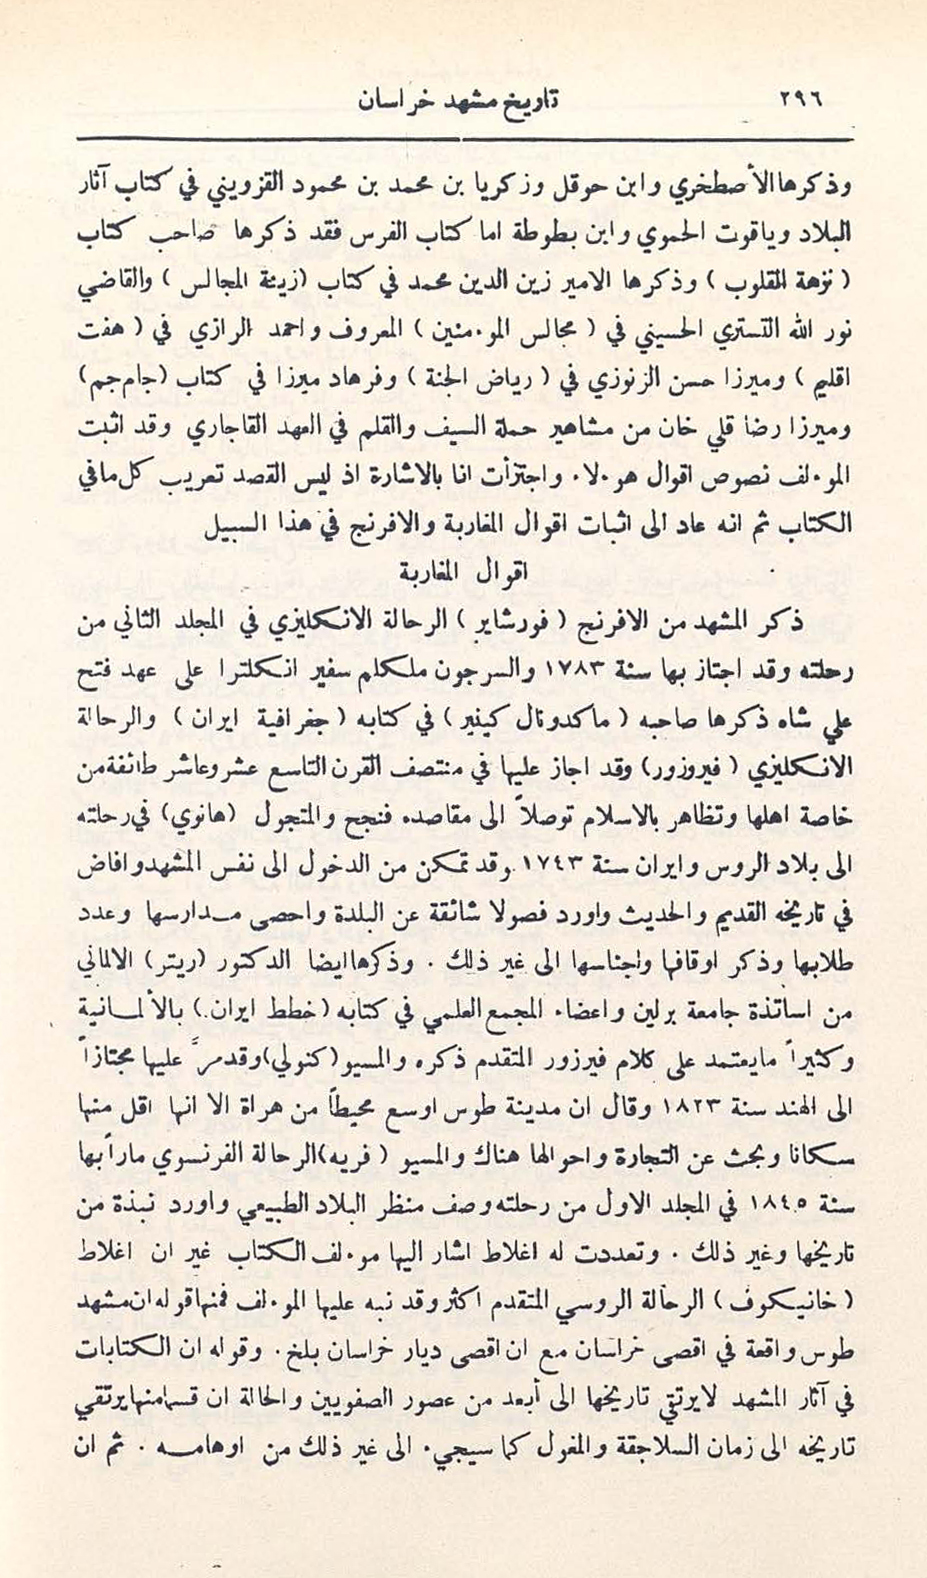 ٢٩٦
تاريخ مشهد خراسان
وذكرها الأصطخري وابن حوقل وزكريا بن محمد بن محمود القزويني في كتاب آثار
البلاد وياقوت الحموي وابن بطوطة اما كتاب الفرس فقد ذكرها صاحب كتاب
( نزهة القلوب ) وذكرها الامير زين الدين محمد في كتاب (زينة المجالس ) والقاضي
نور الله التستري الحسيني في ( مجالس المو٠منين ) المعروف واحمد الرازي في ( هفت
اقليم ) وميرزا حسن الزنوزي في ( رياض الجنة ) وفرهاد ميرزا في كتاب (جام جم)
وميرزا رضا قلي خان من مشاهير حملة السيف والقلم في العهد القاجاري وقد اثبت
المو٠لف نصوص اقوال هو٠لا٠ واجتزأت انا بالاشارة اذ ليس القصد تعريب كل مافي
الكتاب ثم انه عاد الى اثبات اقوال المغاربة والافرنج في هذا السبيل
اقوال المغاربة
ذكر المشهد من الافرنج ( فورشاير ) الرحالة الانكليزي في المجلد الثاني من
رحلته وقد اجتاز بها سنة ١٧٨٣ والسرجون ملكلم سفير انكلترا على عهد فتح
علي شاه ذكرها صاحبه ( ماكدونال كينير ) في كتابه ( جغرافية ايران ) والرحالة
الانكليزي ( فيروزور) وقد اجاز عليها في منتصف القرن التاسع عشر وعاشر طائفة من
خاصة اهلها وتظاهر بالاسلام توصلاً الى مقاصده فنجح والمتجول (هانوي) في رحلته
الى بلاد الروس وايران سنة ١٧٤٣ وقد تمكن من الدخول الى نفس المشهد وافاض
في تاريخه القديم والحديث واورد فصولا شائقة عن البلدة واحصى مدارسها وعدد
طلابها وذكر اوقافها واجناسها الى غير ذلك . وذكرها ايضا الدكتور (ريتر) الالماني
من اساتذة جامعة برلين واعضاء المجمع العلمي في كتابه (خطط ايران ) بالألمانية
وكثيراً مايعتمد على كلام فيرزور المتقدم ذكره والمسيو (كنولي) وقد مرَّ عليها مجتازاً
الى الهند سنة ١٨٢٣ وقال ان مدينة طوس اوسع محيطاً من هراة الا انها اقل منها
سكانا وبحث عن التجارة واحوالها هناك والمسيو ( فريه) الرحالة الفرنسوي ماراً بها
سنة ١٨٤٥ في المجلد الاول من رحلته وصف منظر البلاد الطبيعي واورد نبذة من
تاريخها وغير ذلك . وتعددت له اغلاط اشار اليها مو٠لف الكتاب غير ان اغلاط
( خانيكوف ) الرحالة الروسي المتقدم اكثر وقد نبه عليها المو٠لف فمنها قوله ان مشهد
طوس واقعة في اقصى خراسان مع ان اقصى ديار خراسان بلخ . وقوله ان الكتابات
في آثار المشهد لايرتقي تاريخها الى أبعد من عصور الصفويين والحالة ان قسما منها يرتقي
تاريخه الى زمان السلاجقة والمغول كما سيجي٠ الى غير ذلك من اوهامه . ثم ان